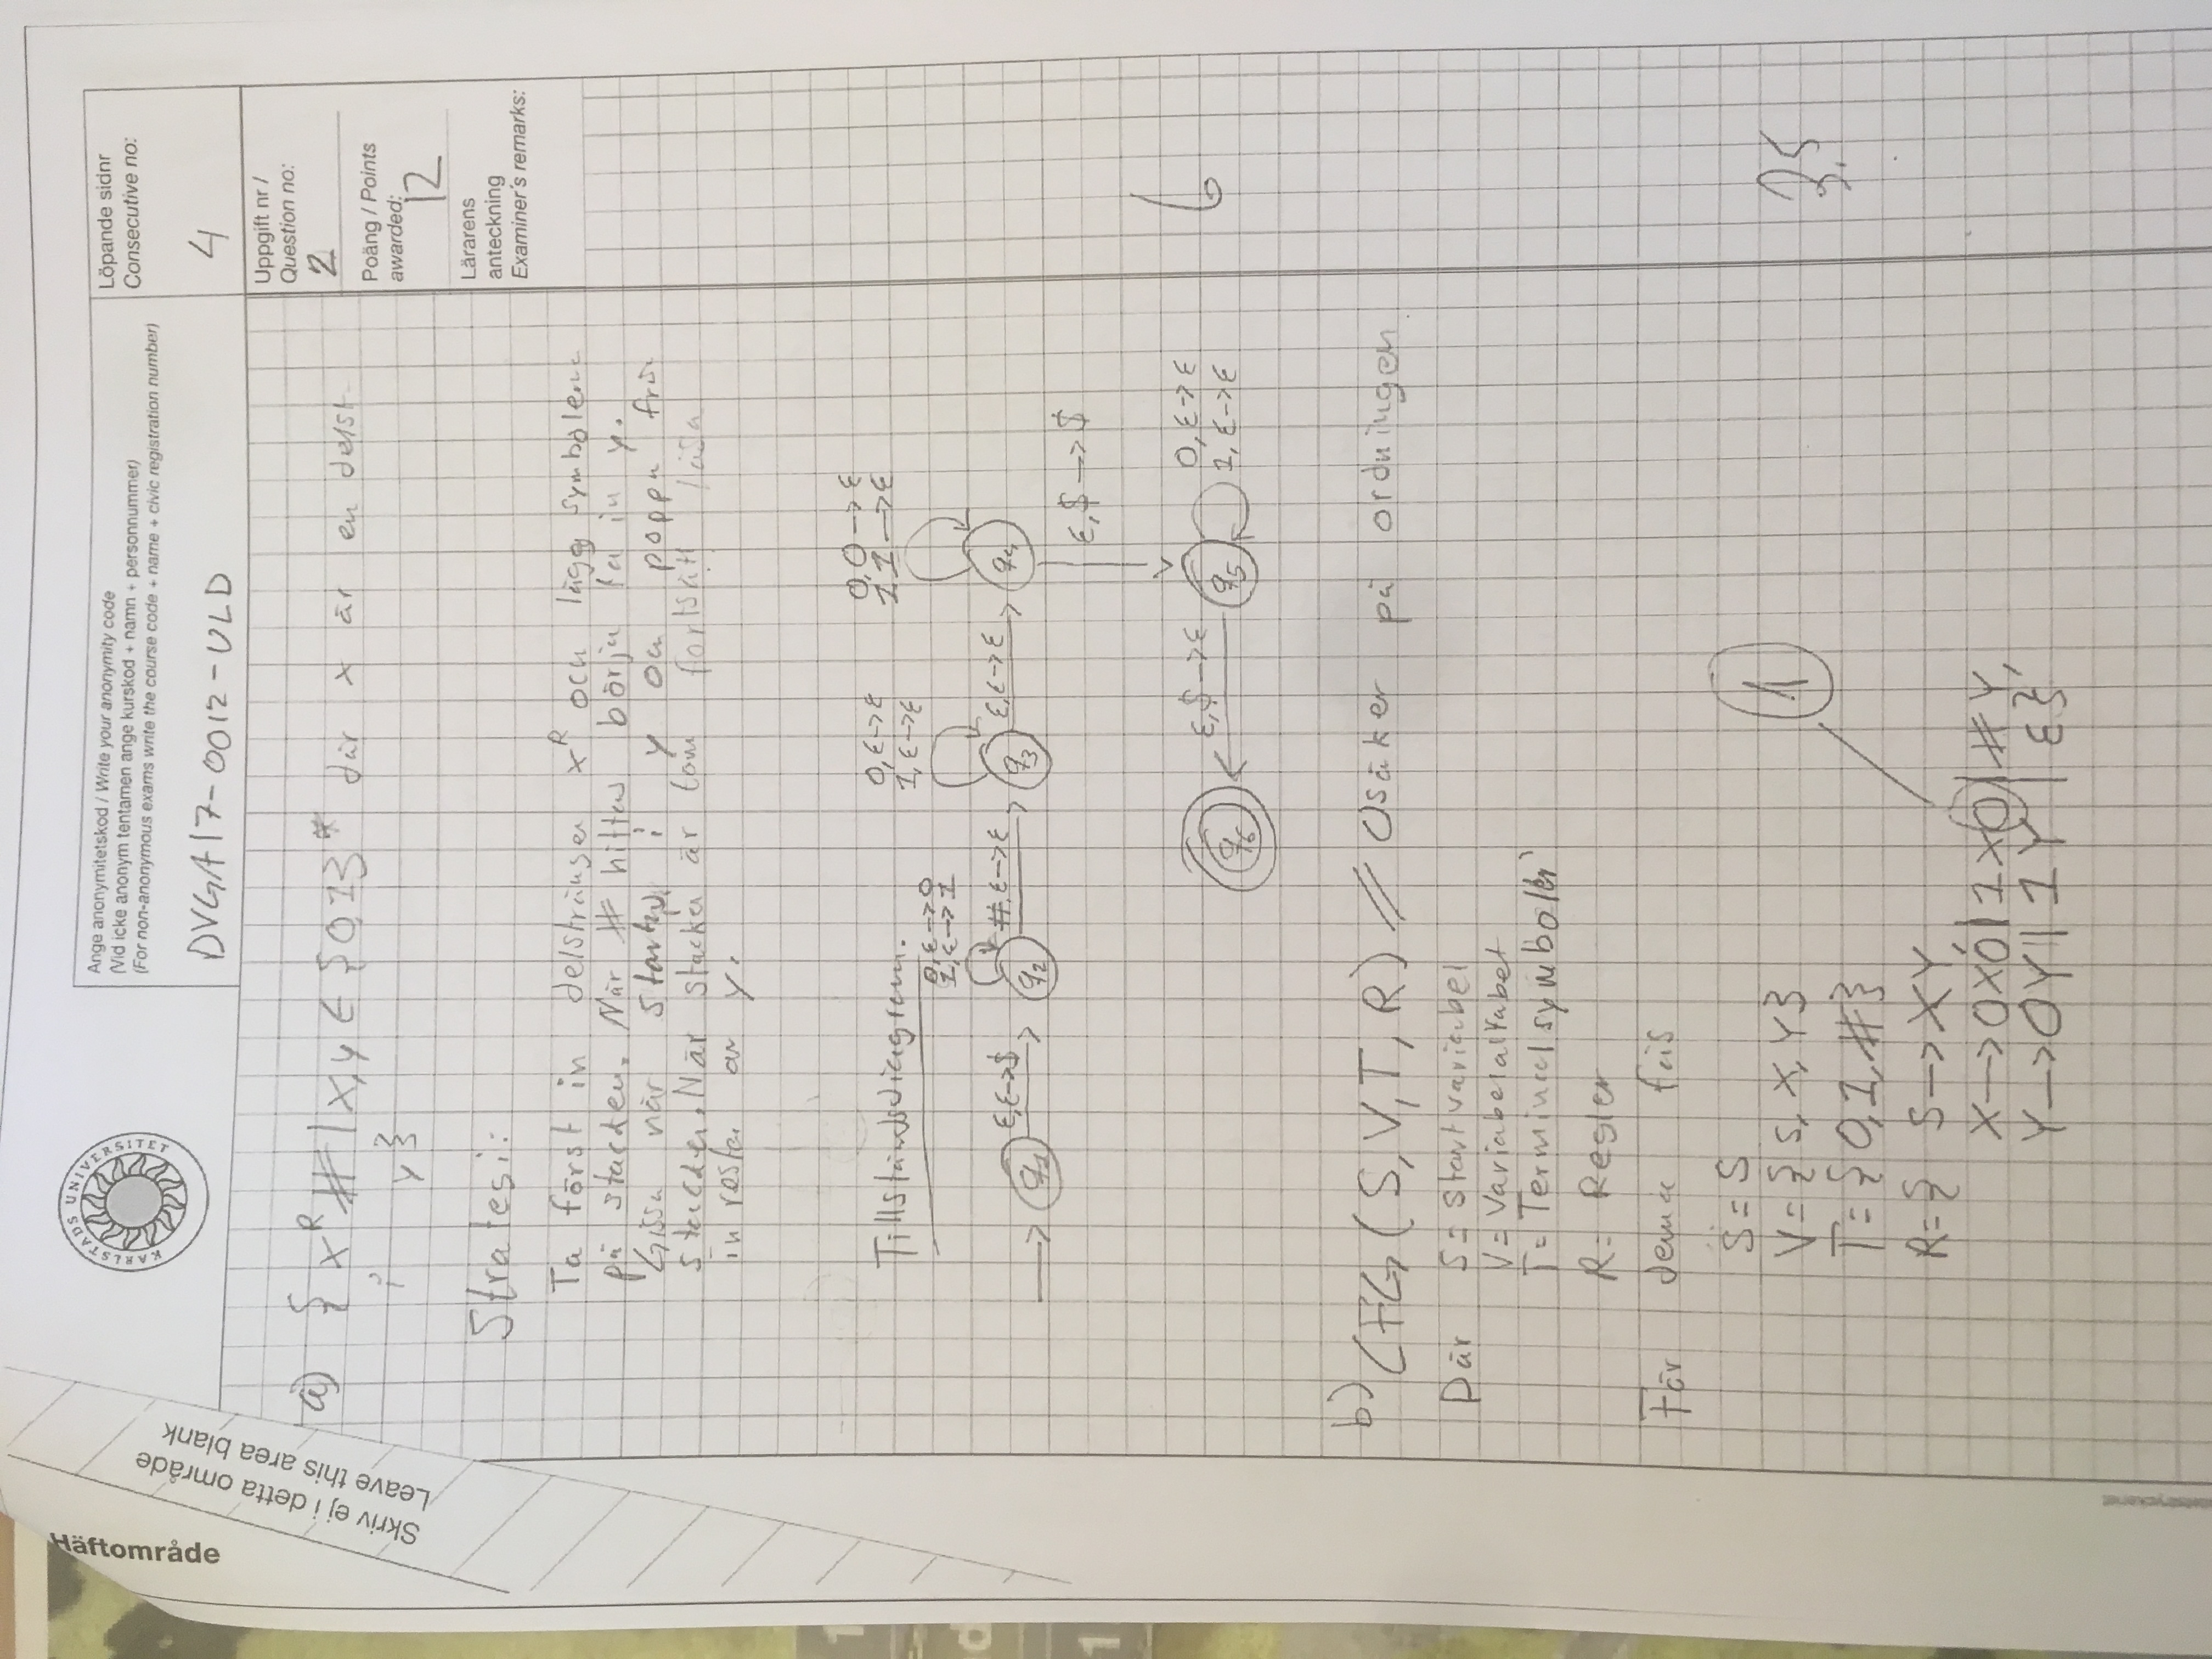 Häftområde
Skriv ej i detta område
Leave this area blank
KARLSTADS UNIVERSITET
Ange anonymitetskod / Write your anonymity code
(Vid icke anonym tentamen ange kurskod + namn + personnummer)
(For non-anonymous exams write the course code + name + civic registration number)
DVGA17-0012-ULD
Löpande sidnr
Consecutive no:
4
Uppgift nr /
Question no:
2
Poäng / Points
awarded:
12
Lärarens
anteckning
Examiner's remarks:
a) { x^R # | x,y ∈ {0,1}* där x är en delst
i y}
Strategi:
Ta först in delstränger x^R och lägg symbolerna
på stacken. När # hittas börja ta in y.
Gissa när startar i y och poppa från
stacken. När stacken är tom fortsätt läsa
in resten av y.
Tillståndsdiagram.
0,ε->0
1,ε->1
0,ε->ε
1,ε->ε
0,0->ε
1,1->ε
q1 ε,ε->$ q2 #,ε->ε q3 ε,ε->ε q4
ε,$->$
q6 ε,$->ε q5 0,ε->ε
1,ε->ε
6
b) CFG (S,V,T,R) // Osäker på ordningen
Där S = startvariabel
V = Variabelalfabet
T = Terminalsymboler
R = Regler
För denna fås
S = S
V = {S, X, Y}
1
T = {0,1,#}
3.5
R = { S -> XY,
X -> 0X0 | 1X0 | #Y,
Y -> 0Y || 1Y | ε}